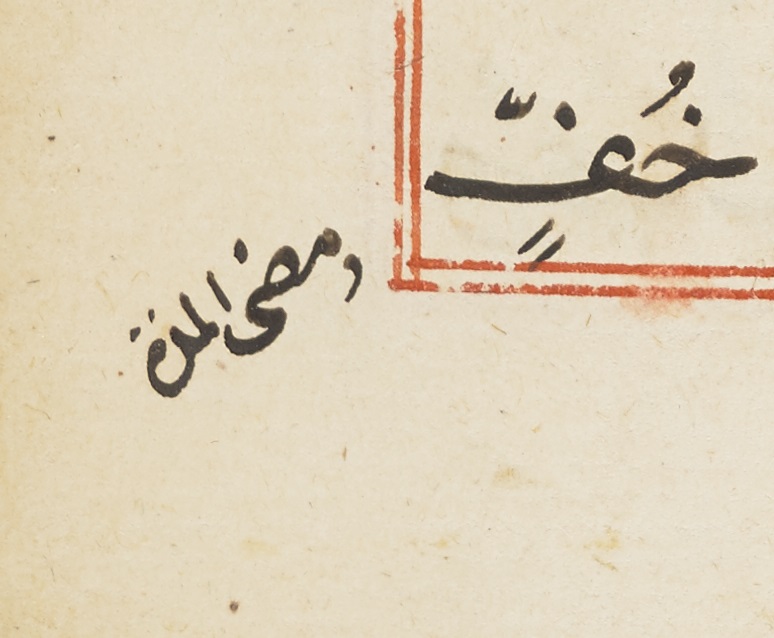 خُفٍّ
ومضى المدة